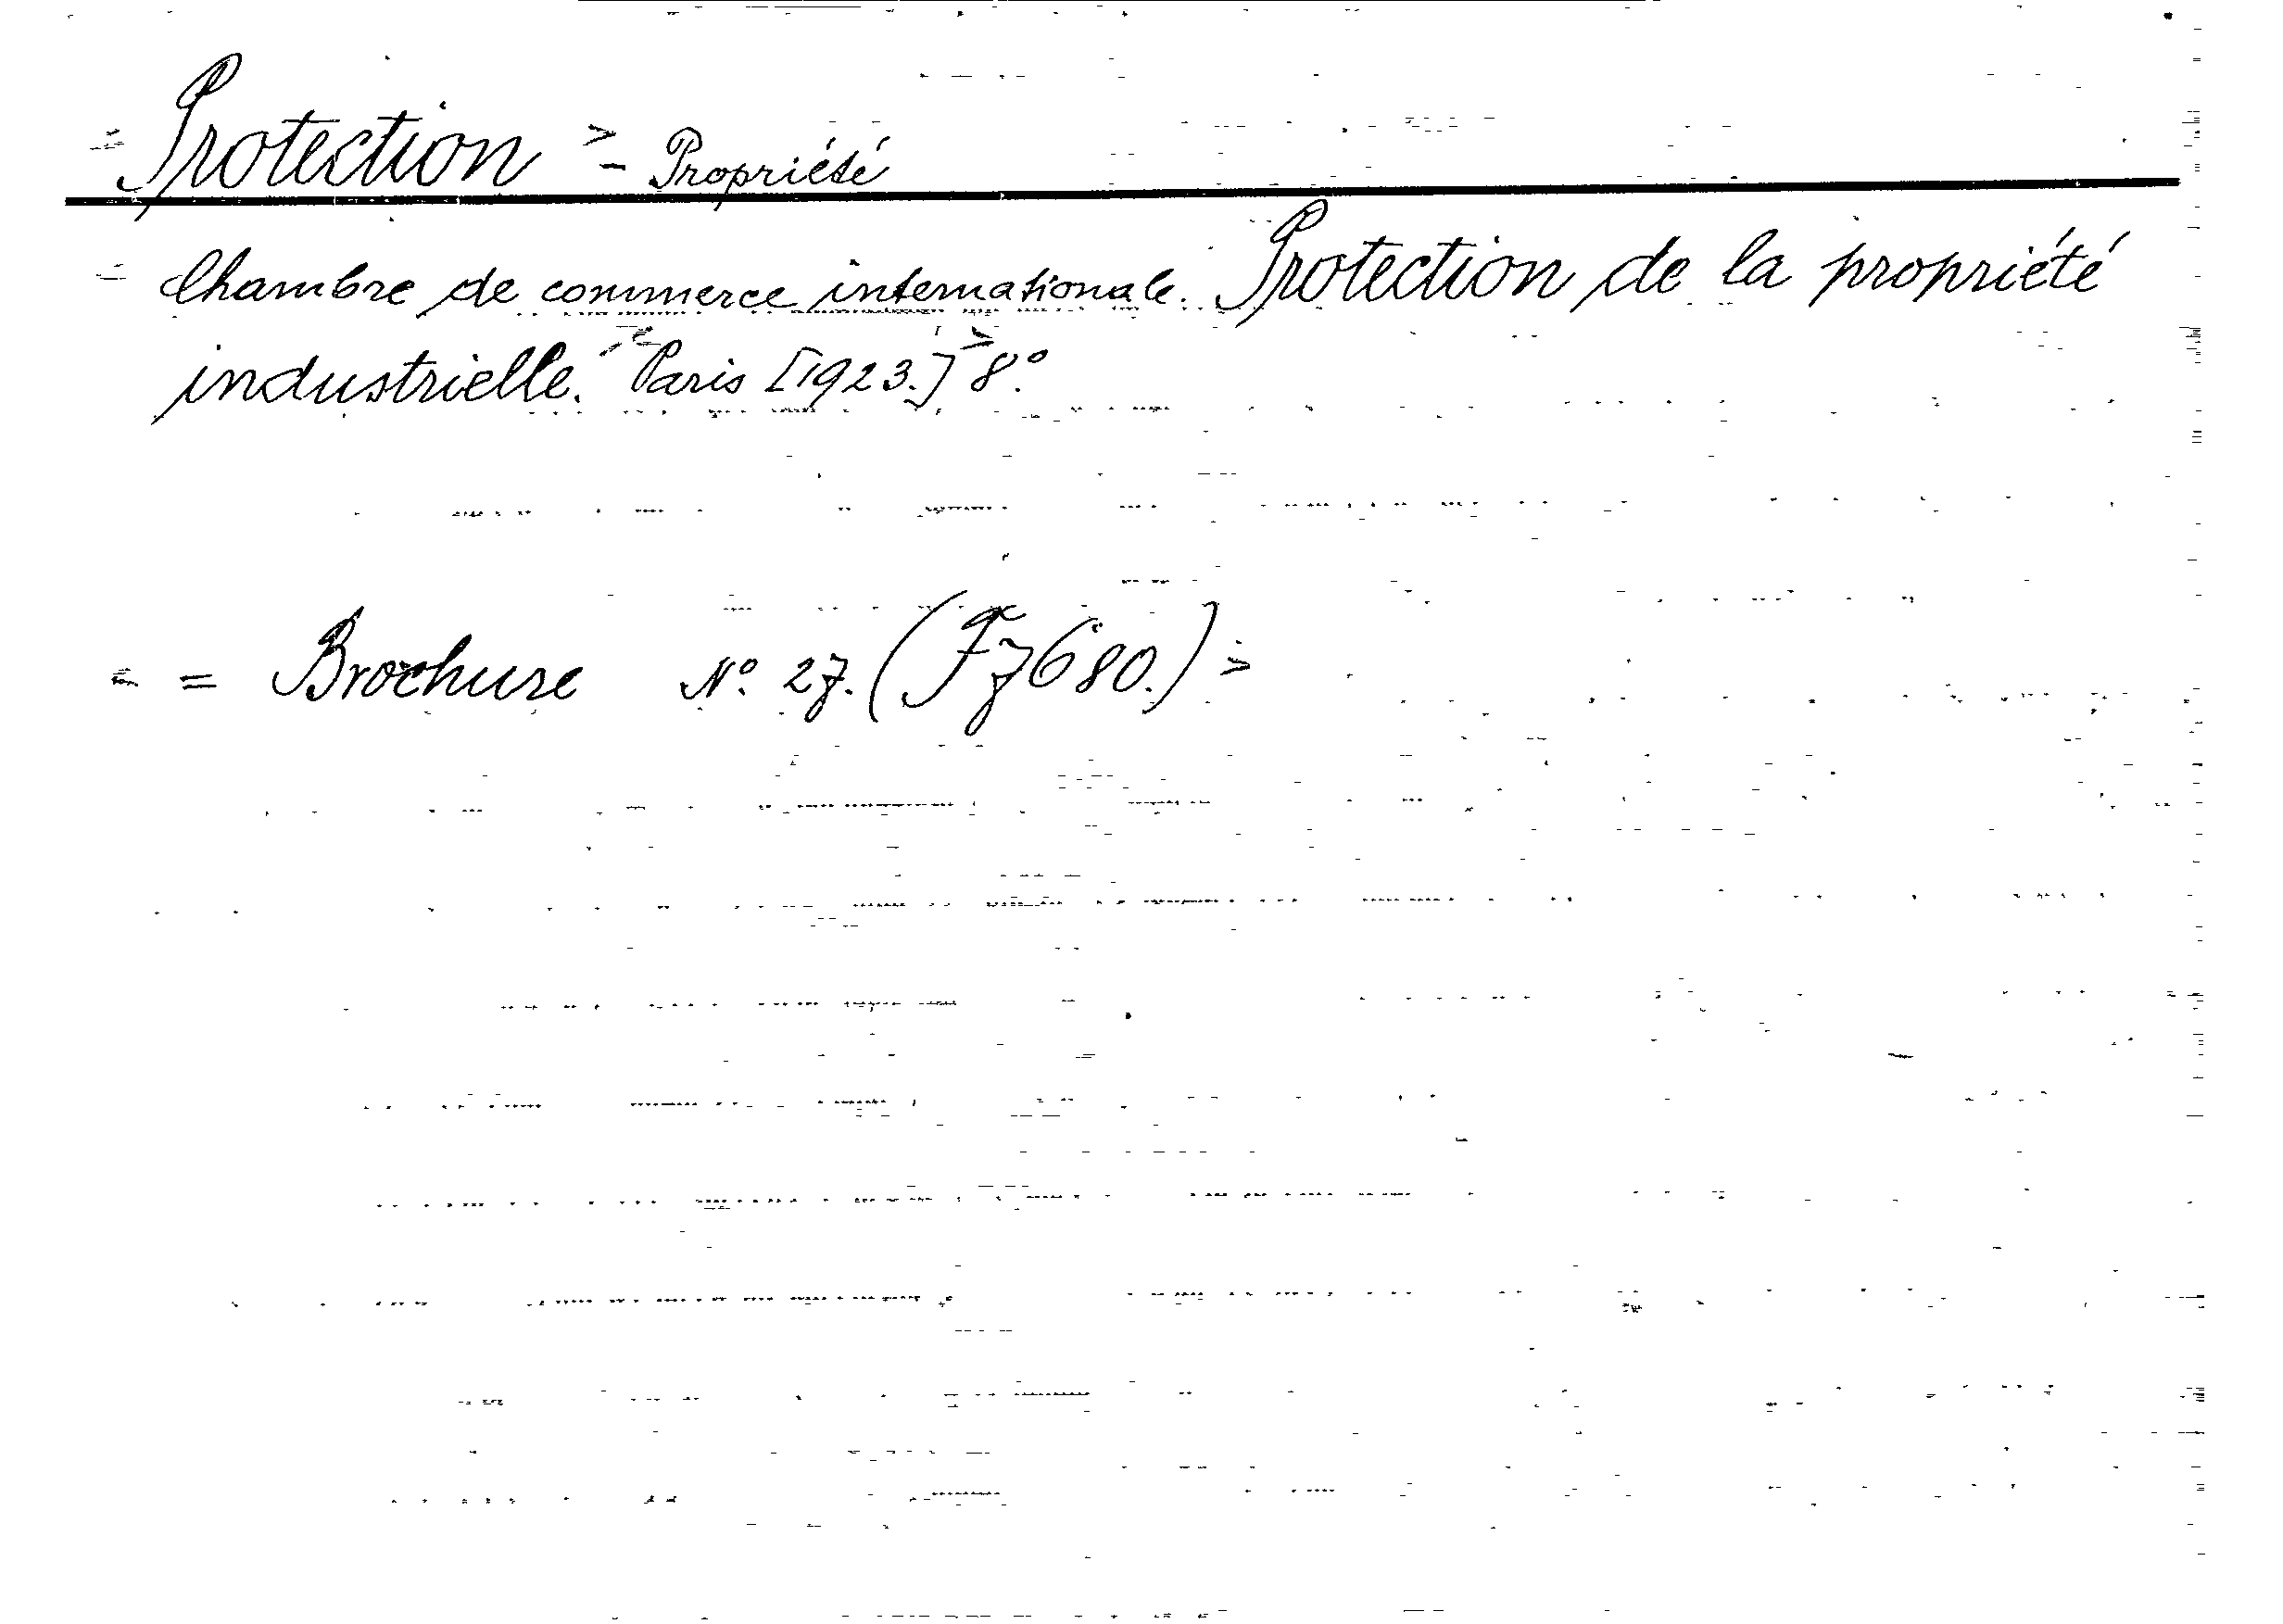 = Protection > - Propriété
= Chambre de commerce internationale. Protection de la propriété
industrielle. = Paris [1923.] > 8.º
= = Brochure Nº. 27. (F7680.) >